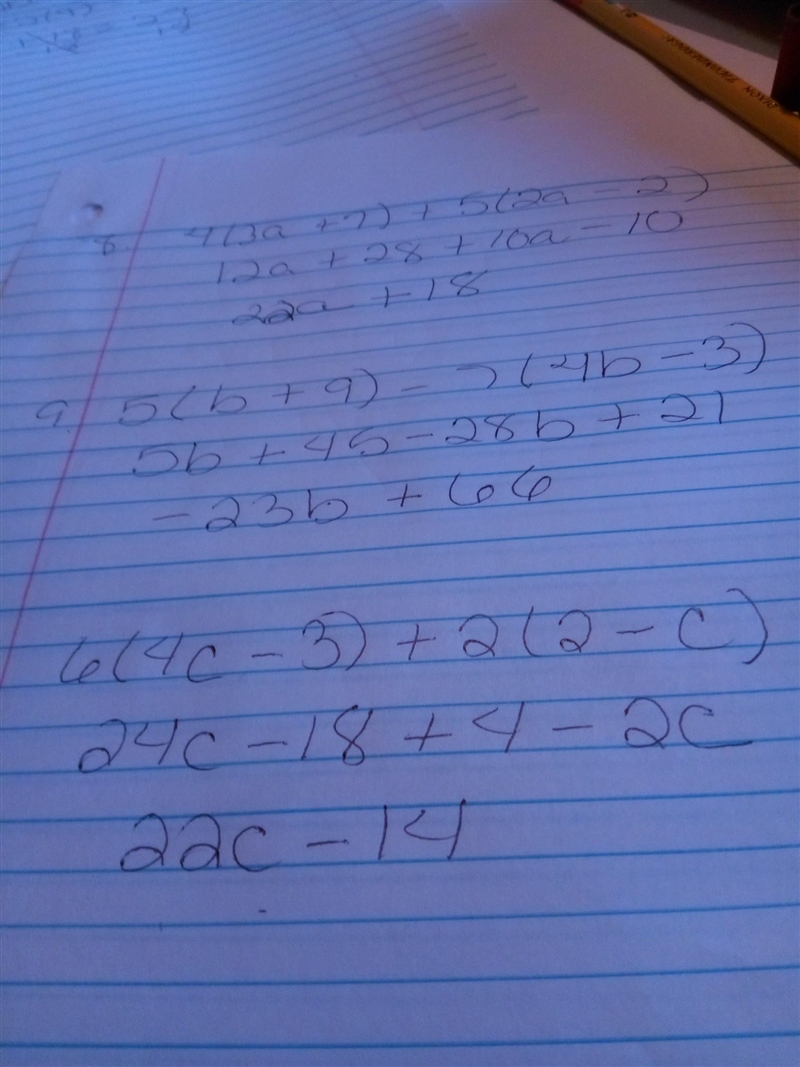 8. 4(3a + 7) + 5(2a - 2)
12a + 28 + 10a - 10
22a + 18
9. 5(b + 9) - 7(4b - 3)
5b + 45 - 28b + 21
-23b + 66
6(4c - 3) + 2(2 - c)
24c - 18 + 4 - 2c
22c - 14